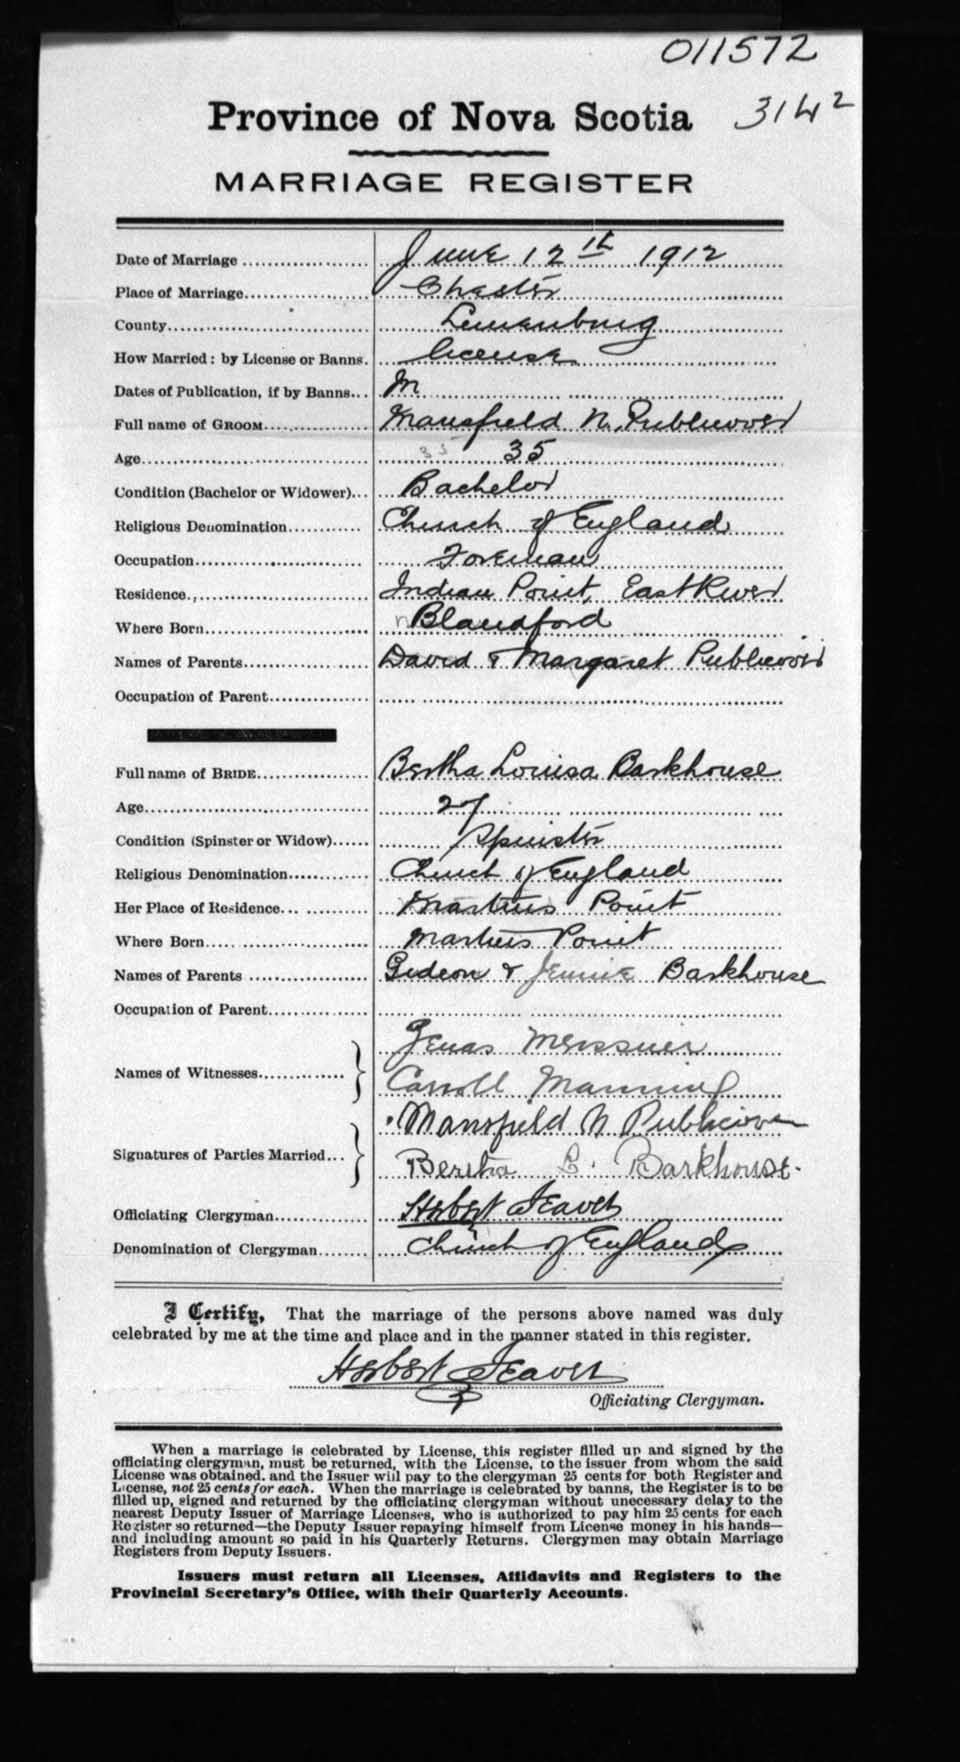 011572
Province of Nova Scotia 314 2
MARRIAGE REGISTER
Date of Marriage June 12th 1912
Place of Marriage Chester
County Lunenburg
How Married: by License or Banns. license
Dates of Publication, if by Banns... M
Full name of GROOM Mansfield N. Publicover
Age 35 35
Condition (Bachelor or Widower)... Bachelor
Religious Denomination Church of England
Occupation Foreman
Residence Indian Point, East River
Where Born Blandford
Names of Parents David & Margaret Publicover
Occupation of Parent
Full name of BRIDE Bertha Louisa Barkhouse
Age 27
Condition (Spinster or Widow) Spinster
Religious Denomination Church of England
Her Place of Residence Martins Point
Where Born Martins Point
Names of Parents Gideon & Jennie Barkhouse
Occupation of Parent
Names of Witnesses Zenas Meissner
Carroll Manning
Signatures of Parties Married Mansfield N Publicover
Bertha L. Barkhouse.
Officiating Clergyman Herbert
Denomination of Clergyman Church of England
I Certify, That the marriage of the persons above named was duly
celebrated by me at the time and place and in the manner stated in this register.
Herbert
Officiating Clergyman.
When a marriage is celebrated by License, this register filled up and signed by the
officiating clergyman, must be returned, with the License, to the issuer from whom the said
License was obtained. and the Issuer will pay to the clergyman 25 cents for both Register and
License, not 25 cents for each. When the marriage is celebrated by banns, the Register is to be
filled up, signed and returned by the officiating clergyman without unnecessary delay to the
nearest Deputy Issuer of Marriage Licenses, who is authorized to pay him 25 cents for each
Register so returned—the Deputy Issuer repaying himself from License money in his hands—
and including amount so paid in his Quarterly Returns. Clergymen may obtain Marriage
Registers from Deputy Issuers.
Issuers must return all Licenses, Affidavits and Registers to the
Provincial Secretary's Office, with their Quarterly Accounts.